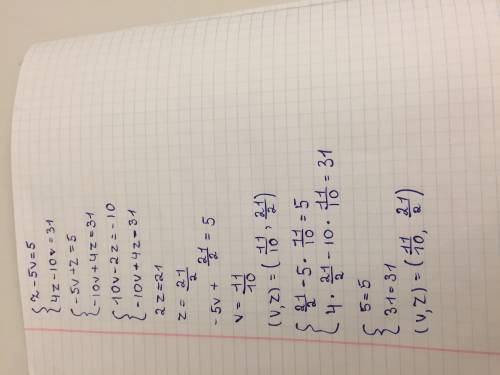 { z - 5v = 5
{ 4z - 10v = 31
{ -5v + z = 5
{ -10v + 4z = 31
{ 10v - 2z = -10
{ -10v + 4z = 31
2z = 21
z = 21/2
-5v + 21/2 = 5
v = 11/10
(v, z) = (11/10, 21/2)
{ 21/2 - 5 · 11/10 = 5
{ 4 · 21/2 - 10 · 11/10 = 31
{ 5 = 5
{ 31 = 31
(v, z) = (11/10, 21/2)